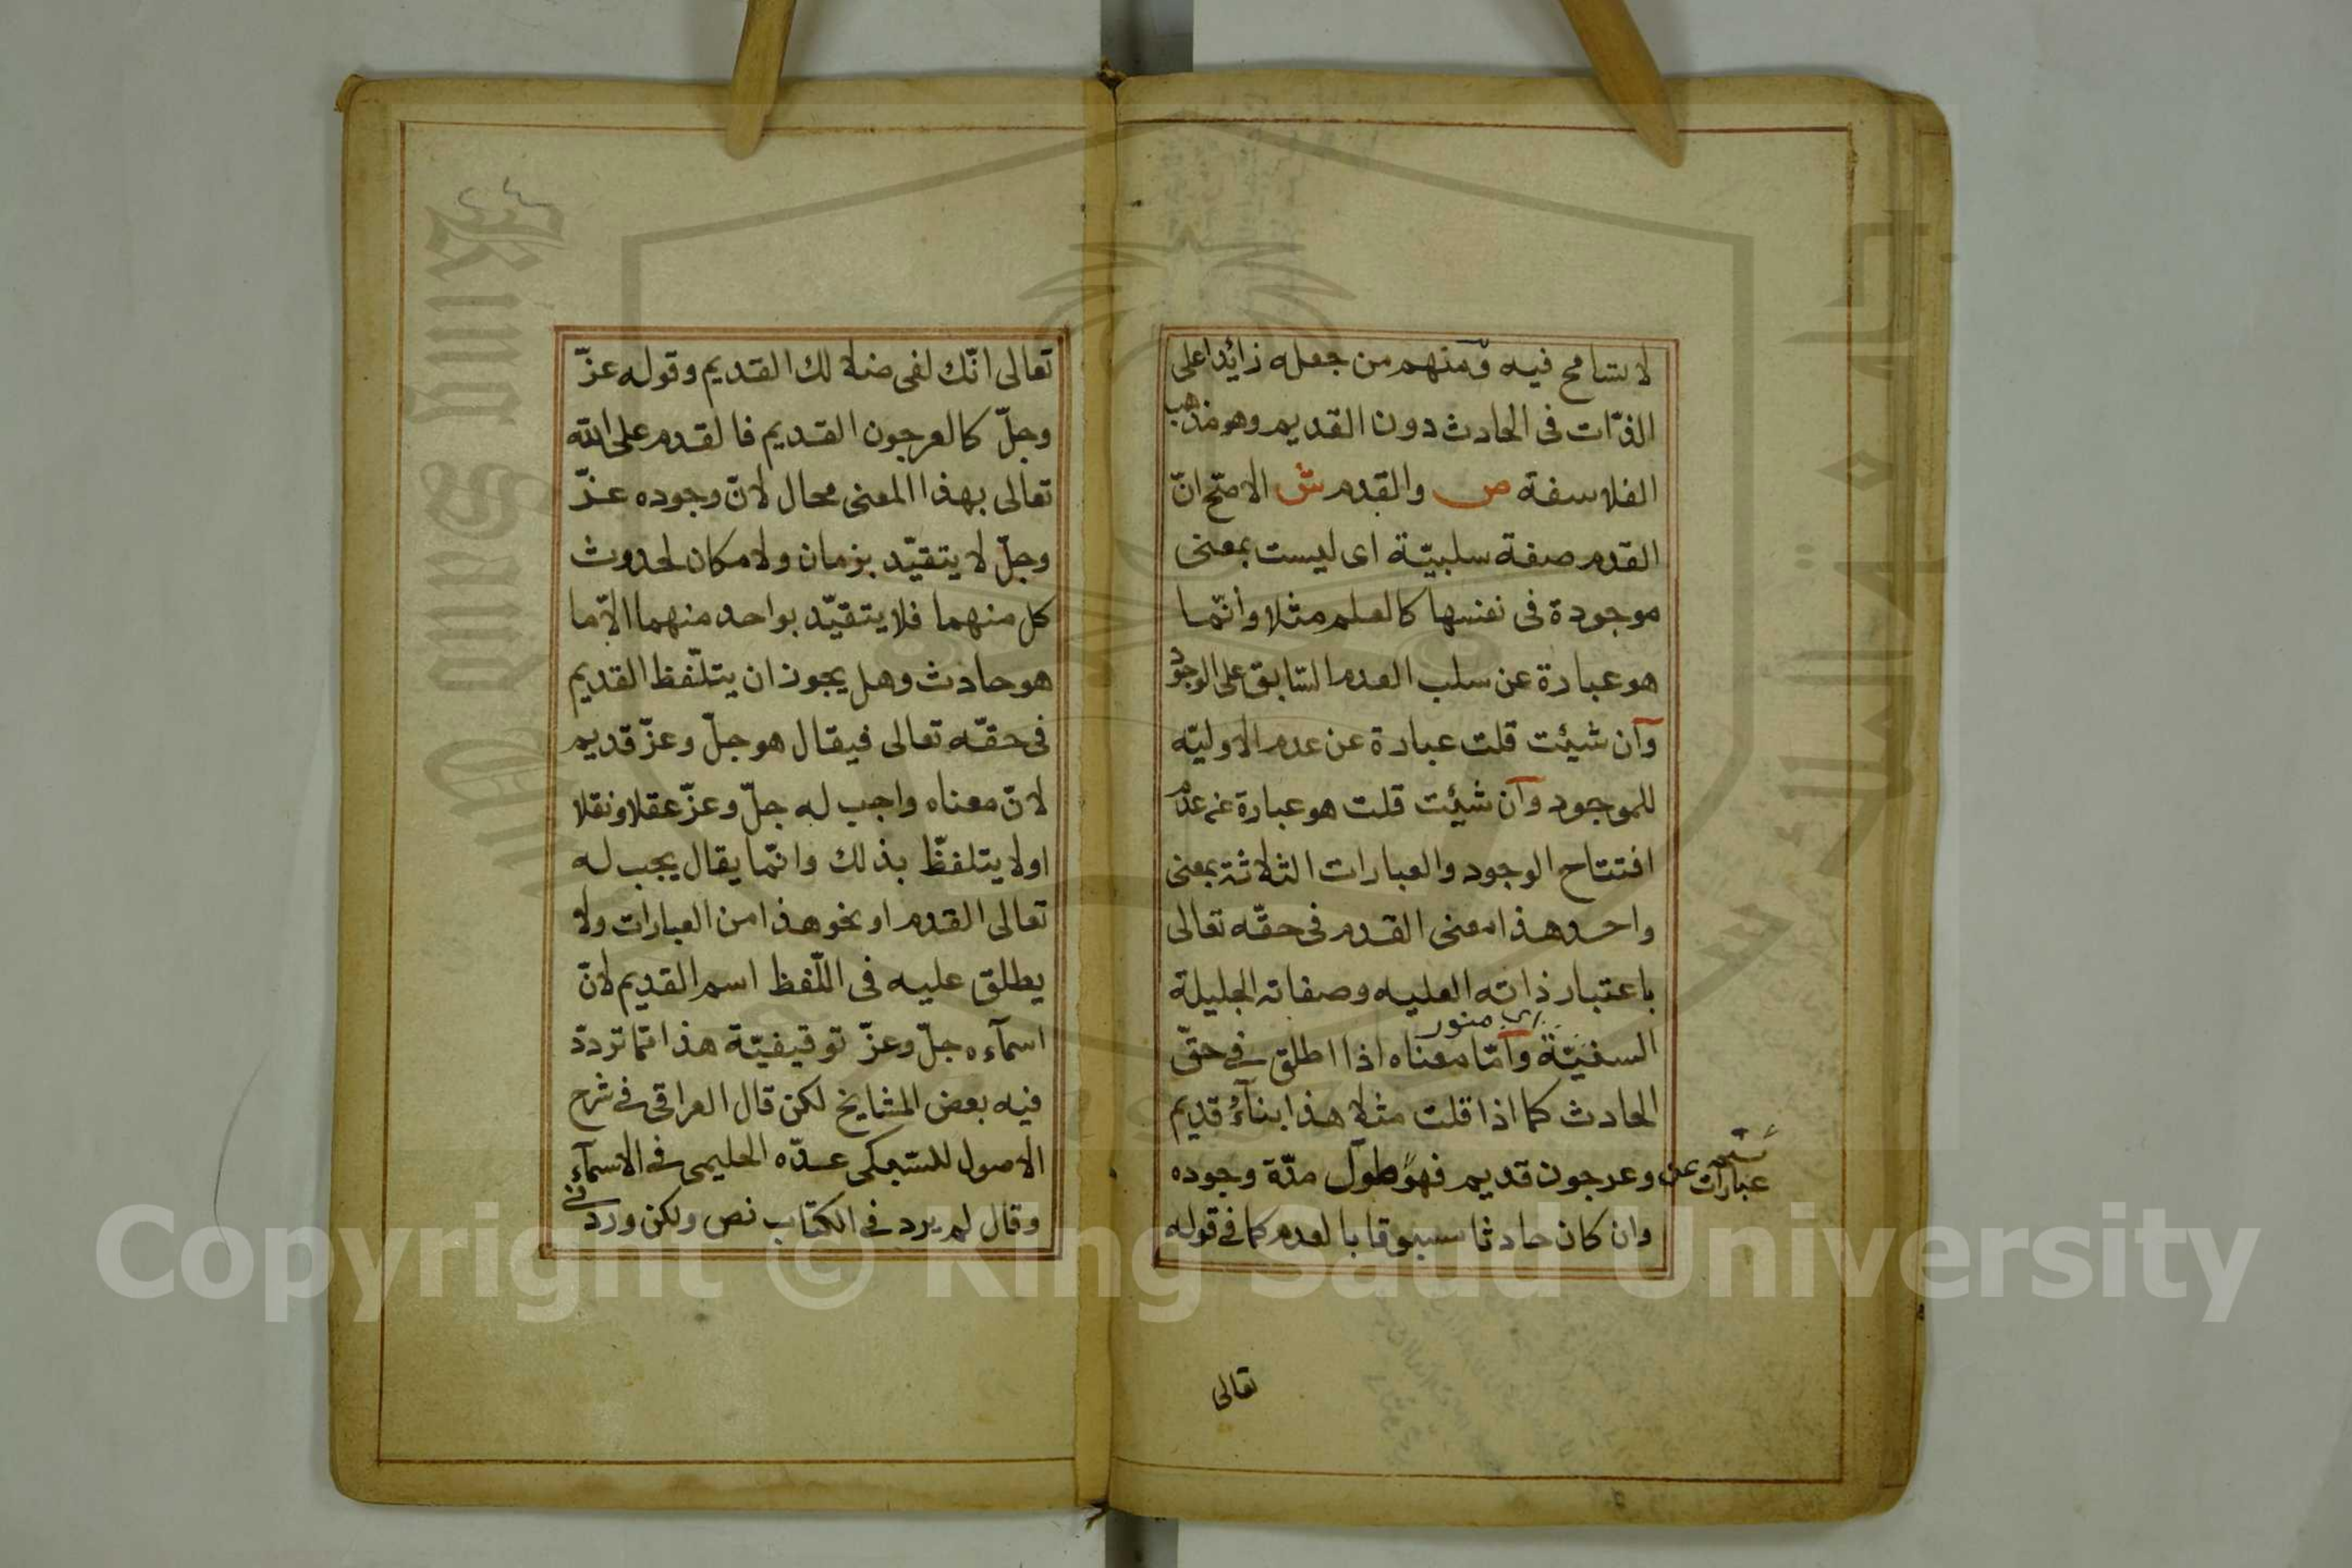 لا تسامح فيه ومنهم من جعله زائدا على
الذّات فى الحادث دون القديم وهو مذهب
الفلاسفة ص والقدم ش الاصحّ انّ
القدم صفة سلبيّة اى ليست بمعنى
موجودة فى نفسها كالعلم مثلا وانّما
هو عبارة عن سلب العدم السّابق على الوجود
وان شيئت قلت عبارة عن عدم الاوليّه
للموجود وان شيئت قلت هو عبارة عن عدم
افتتاح الوجود والعبارات الثلاثة بمعنى
واحد هذا معنى القدم فى حقّه تعالى
باعتبار ذاته العليه وصفاته الجليلة
السنيّة وامّا معناه اذا اطلق فى حقّ
الحادث كما اذا قلت مثلا هذا بنآءُ قديم
وعرجون قديم فهو طول مدّة وجوده
عبارات عن
وان كان حادثا مسبوقا بالعدم كما فى قوله
تعالى
تعالى انّك لفى ضلالك القديم وقوله عزّ
وجلّ كالعرجون القديم فالقدم على الله
تعالى بهذا المعنى محال لانّ وجوده عزّ
وجلّ لا يتقيّد بزمان ولا مكان لحدوث
كل منهما فلا يتقيّد بواحد منهما الاّ ما
هو حادث وهل يجوز ان يتلّفظ القديم
فى حقّه تعالى فيقال هو جلّ وعزّ قديم
لانّ معناه واجب له جلّ وعزّ عقلا ونقلا
اولا يتلفظّ بذلك وانّما يقال يجب له
تعالى القدم او نحو هذا من العبارات ولا
يطلق عليه فى اللّفظ اسم القديم لانّ
اسمآءه جلّ وعزّ توقيفيّة هذا ممّا تردّد
فيه بعض المشايخ لكن قال العراقى فى شرح
الاصول للسّبكى عدّه الحليمى فى الاسمآء
وقال لم يرد فى الكتاب نص ولكن ورد فى
Copyright © King Saud University